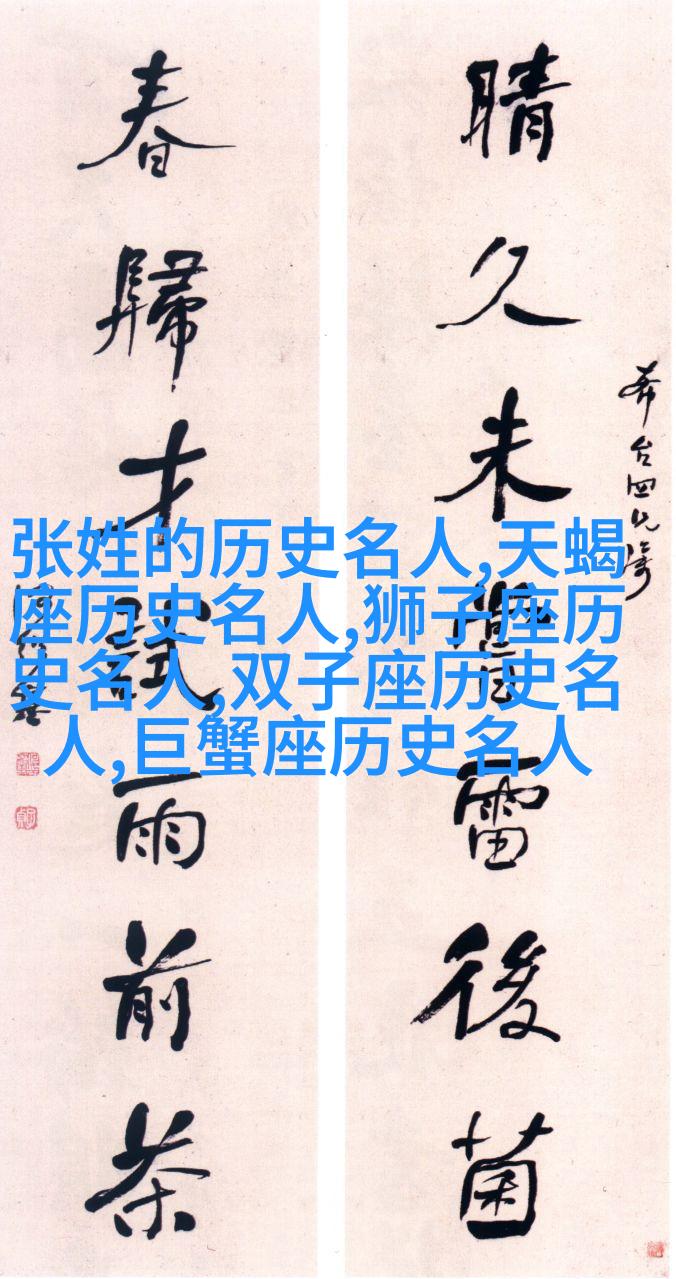 晴久未雷後菌
春歸才試雨前茶
张姓的历史名人,天蝎
座历史名人,狮子座历
史名人,双子座历史名
人,巨蟹座历史名人